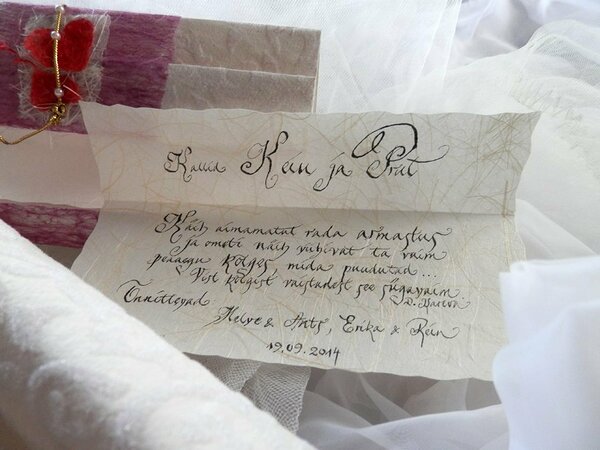 Kallid Kein ja Priit
Käib aimamatut rada armastus
ja ometi näib viibivat ta vaim
peaaegu kõiges mida puudutad...
Vist kõigist vaistudest see sügavaim.
D. Vareva
Õnnitlevad
Helve & Ants, Erika & Rein
19.09.2014